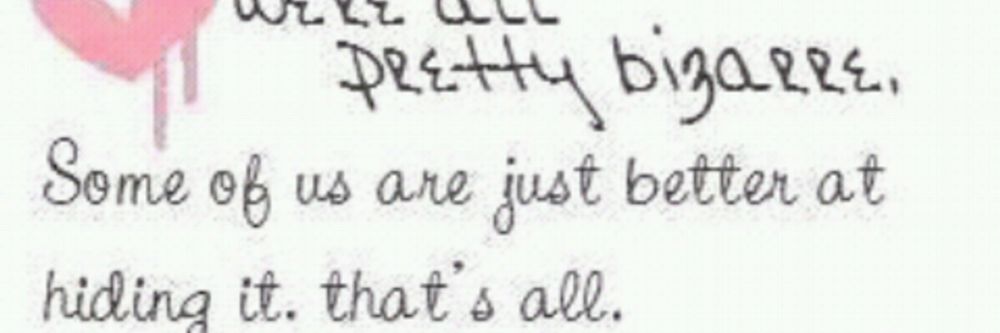 we're all
pretty bizarre.
Some of us are just better at
hiding it. that's all.